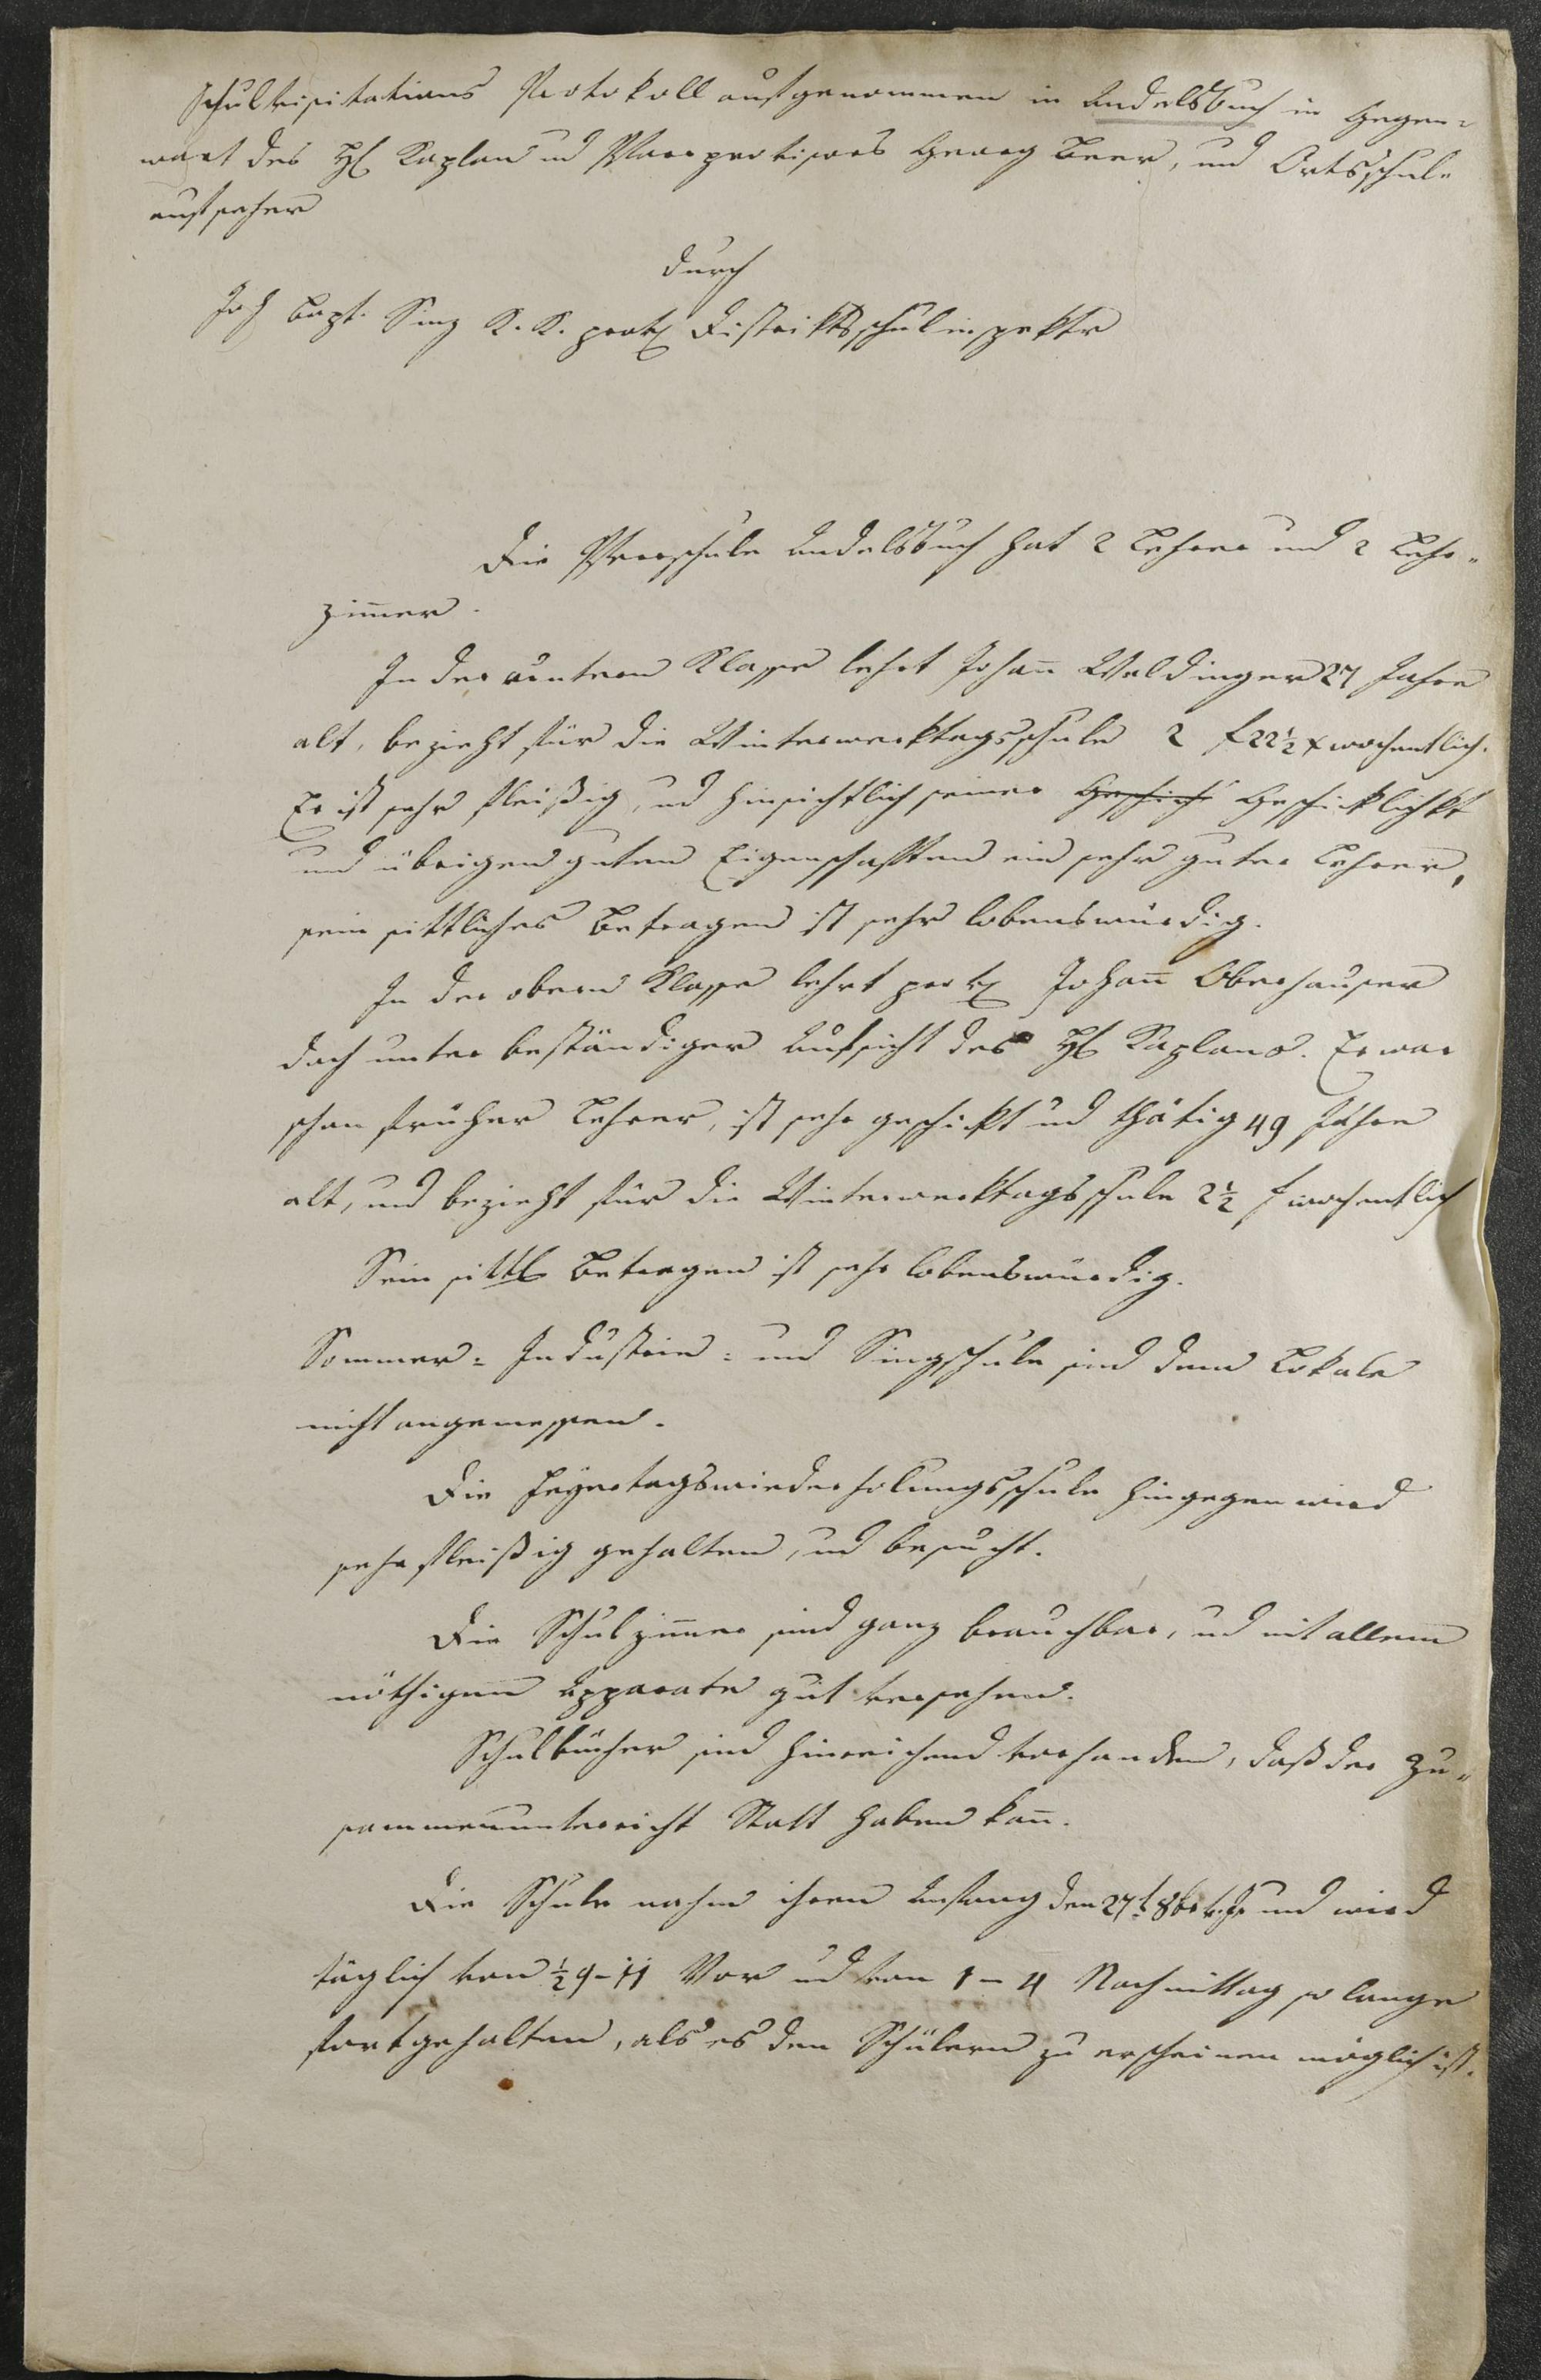 Schulvisitations Protokoll aufgenommen in Andelsbuch in Gegen=
wart des H. Kaplan und Pfarrprovisors Georg Beer, und Ortsschul=
aufseher
durch
Joh Bapt. Sinz K. K. prov. Distriktsschulinspektor
Die Pfarrschule Andelsbuch hat 2 Lehrer und 2 Lehr=
zimmer.
In der untern Klasse lehrt Johann Waldinger 27 Jahre
alt, bezieht für die Winterwerktagsschule 2 f 22½ x wochentlich.
Er ist sehr fleißig, und hinsichtlich seiner Geschick Geschicklichkt
und übrigen guten Eigenschaften ein sehr guter Lehrer,
sein sittliches Betragen ist sehr lobenswürdig.
In der obern Klasse lehrt prov. Johann Oberhauser
doch unter beständiger Aufsicht des H. Kaplans. Er war
schon früher Lehrer, ist sehr geschickt und thätig 49 Jahre
alt, und bezieht für die Winterwerktagsschule 2½ f wochentlich
Sein sittl. Betragen ist sehr lobenswürdig.
Sommer= Industrie= und Singschule sind dem Lokale
nicht angemessen.
Die Feyertagswiederholungsschule hingegen wird
sehr fleißig gehalten, und besucht.
Die Schulzimmer sind ganz brauchbar, und mit allem
nöthigen Apparate gut versehen.
Schulbücher sind hinreichend vorhanden, daß der Zu=
sammenunterricht Statt haben kann.
Die Schule nahm ihren Anfang den 27t 8br v. J. und wird
täglich von ½ 9-11 Vor und von 1-4 Nachmittag so lange
fortgehalten, als es den Schülern zu erscheinen möglich ist.